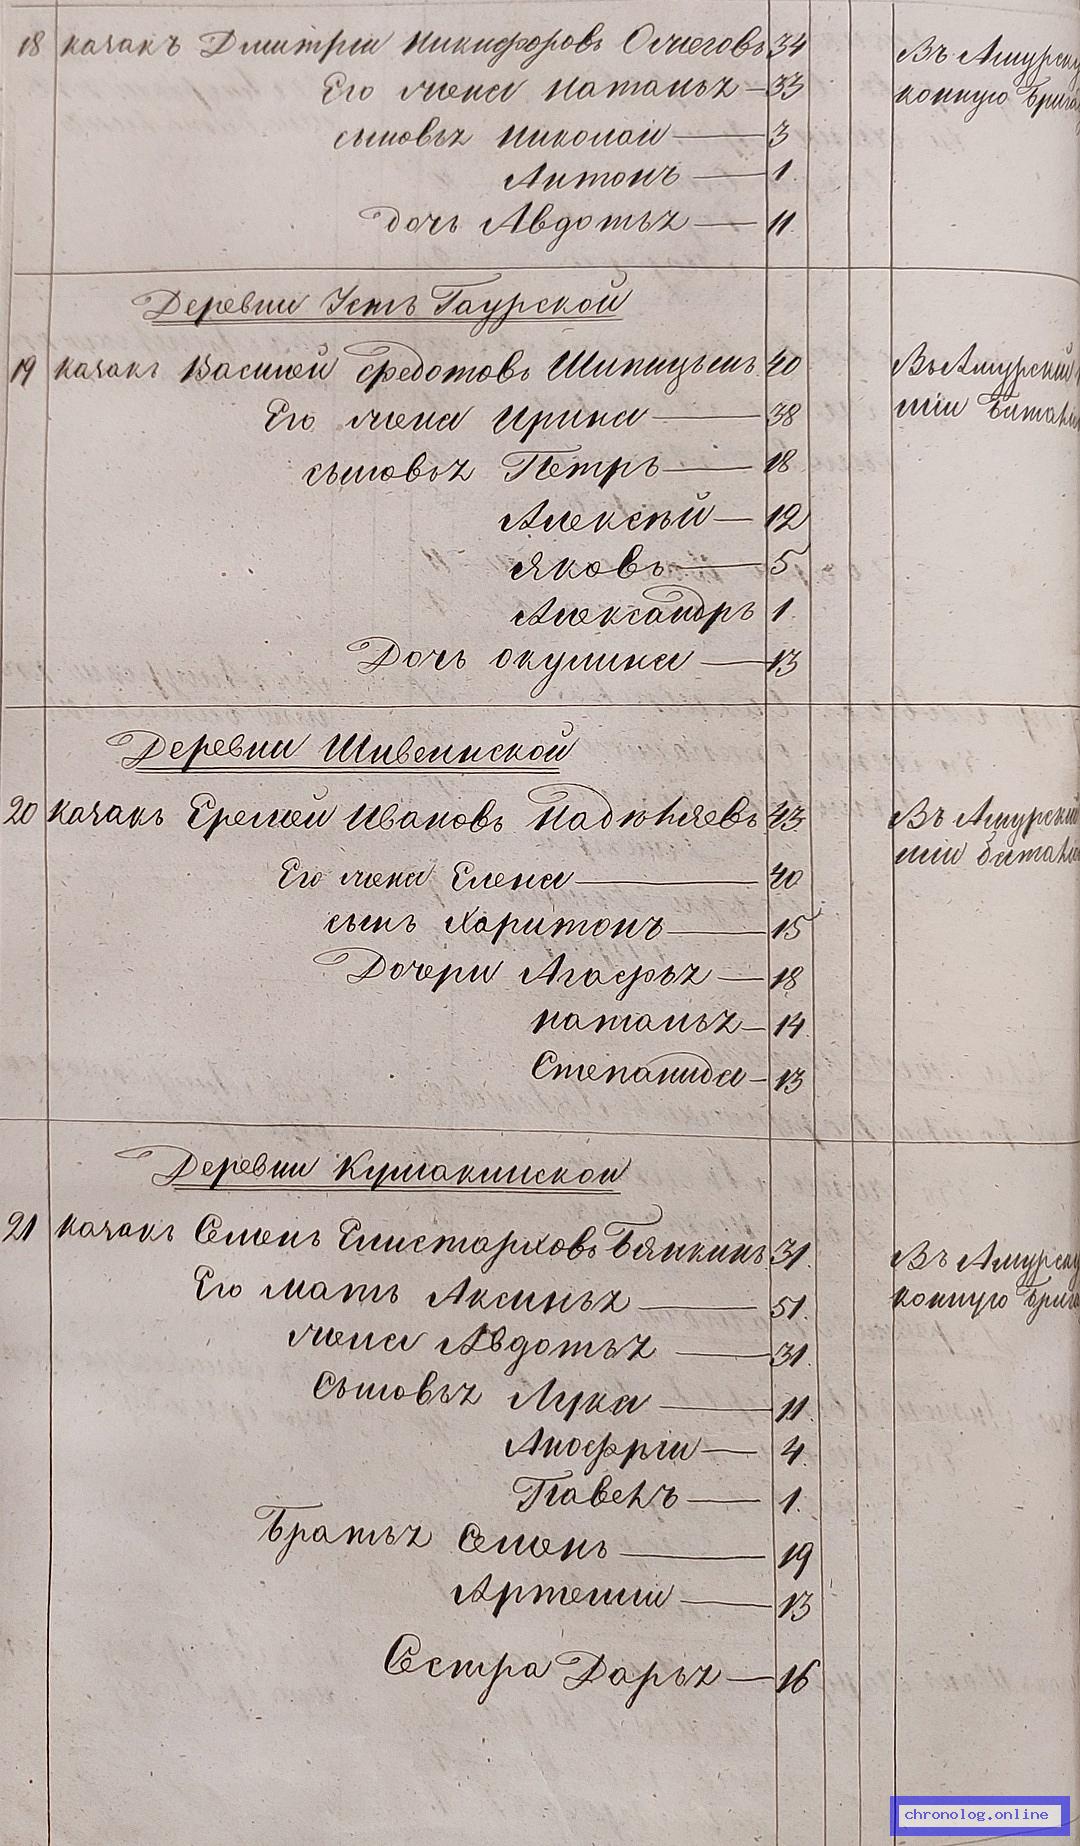 18 казакъ Дмитрiй Никифоровъ 34 Въ Амурску
Его жена Наталья 33 конную Брига
сыновья Николай 3
Антонъ 1.
дочь Авдотья 11
Деревни Усть Таурской
19 казакъ Василiй Федотовъ Шипицынъ 40 Въ Амурскiй
Его жена Ирина 38 шiй Батал
сыновья Петръ 18
Алексѣй 12
Яковъ 5
Александръ 1
Дочь окулина 13
Деревни Шивеинской
20 казакъ Еремѣй Ивановъ 43 Въ Амурскiй
Его жена Елена 40 шiй батал
сынъ Харитонъ 15
Дочери Агафья 18
наталья 14
Степанида 13
Деревни Кумакинской
21 казакъ Семенъ Елистарховъ Бянкинъ 31. Въ Амурску
Его мать Аксинья 51. конную Брига
жена Авдотья 31.
Сыновья Лука 11.
Анофрiй 4.
Павелъ 1.
Братья Семенъ 19
Артемiй 13
Сестра Дарья 16
chronolog.online